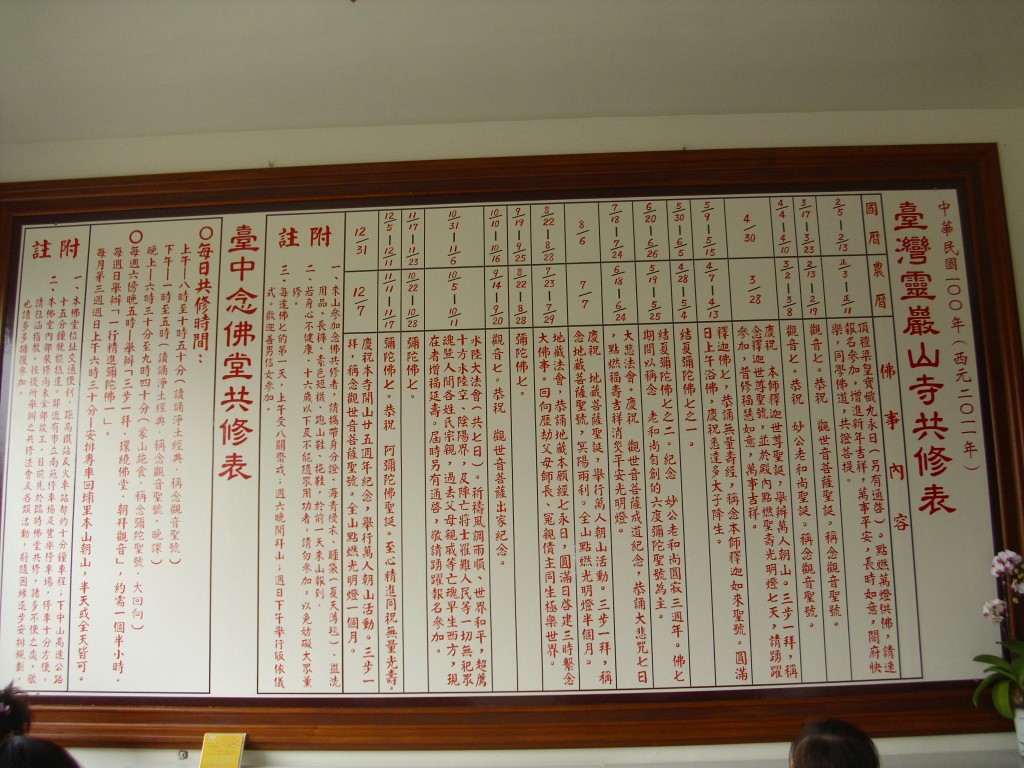 中華民國一００年（西元二０一一年）
臺灣靈巖山寺共修表
國曆
農曆
佛事內容
2/5—2/13
正/3—正/11
頂禮梁皇寶懺九永日（另有通啓）。點燃萬燈供佛，請速
報名參加，增進新年吉祥，萬事平安，長時如意，闔府快
樂，同學佛道，共證菩提。
3/17—3/23
2/13—2/19
觀音七。恭祝　觀世音菩薩聖誕。稱念觀音聖號。
4/4—4/10
3/2—3/8
觀音七。恭祝　妙公老和尚聖誕。稱念觀音聖號。
4/30
3/28
慶祝　本師釋迦世尊聖誕，舉辦萬人朝山。三步一拜，稱
念釋迦世尊聖號，並於殿內點燃聖壽光明燈七天，請踴躍
參加，普修福慧，如意，萬事吉祥。
5/9—5/15
4/7—4/13
釋迦佛七，恭誦無量壽經，稱念本師釋迦如來聖號，圓滿
日上午浴佛，慶祝悉達多太子降生。
5/30—6/5
4/28—5/4
結夏彌陀佛七之一。
6/20—6/26
5/19—5/25
結夏彌陀佛七之二。紀念　妙公老和尚圓寂三週年。佛七
期間以稱念　老和尚自創的六度彌陀聖號為主。
7/18—7/24
6/18—6/24
大悲法會。慶祝　觀世音菩薩成道紀念，恭誦大悲咒七日
。點燃福壽吉祥消災平安光明燈。
8/6
7/7
慶祝　地藏菩薩聖誕，舉行萬人朝山活動。三步一拜，稱
念地藏菩薩聖號，冥陽兩利。全山點燃光明燈半個月。
8/22—8/28
7/23—7/29
地藏法會，恭誦地藏本願經七永日，圓滿日啓建三時繫念
大佛事。回向歷劫父母師長、冤親債主同生極樂世界。
9/19—9/25
8/22—8/28
彌陀佛七。
10/10—10/16
9/14—9/20
觀音七。恭祝　觀世音菩薩出家紀念。
10/31—11/6
10/5—10/11
水陸大法會（共七日）。祈禱風調雨順、世界和平，超薦
十方水陸空、陰陽界，及陣亡將士罹難人民等一切無祀眾
魂暨人間各姓氏宗親，過去父母親戚等亡魂早生西方，現
在者增福延壽。屆時另有通啓，敬請踴躍報名參加。
11/17—11/23
10/22—10/28
彌陀佛七。
12/5—12/11
11/11—11/17
彌陀佛七。恭祝　阿彌陀佛聖誕。至心精進同祝無量光壽。
12/31
12/7
慶祝本寺開山廿五週年紀念，舉行萬人朝山活動。三步一
拜，稱念觀世音菩薩聖號。全山點燃光明燈一個月。
附註
一、來山參加念佛共修者，請攜帶身分證、海青縵衣、睡袋（夏天薄毯）、盥洗
用品、長褲、素色短襪、跑山鞋、拖鞋，於前一天來山報到。
二、若身心不健康，十六歲以下及不能隨眾用功者，請勿參加，以免妨礙大眾薰
修。
三、每逢佛七的第一天，上午受八關齋戒；週六晚間拜山；週日下午舉行皈依儀
式。歡迎善男信女參加。
臺中念佛堂共修表
○每日共修時間：
上午—八時至十時五十分（讀誦淨土經典、稱念觀音聖號）
下午—一時至五時（讀誦淨土經典、稱念觀音聖號、晚課）
晚上—六時三十分至九時四十分（蒙山施食、稱念彌陀聖號、大回向）
○每週六傍晚五時—舉辦「三步一拜、環繞佛堂、朝拜觀音」，約需一個半小時。
每週日舉辦「一行精進彌陀佛一」。
每月第三週週日上午六時三十分—安排專車回埔里本山朝山，半天或全天皆可。
附註
一、本佛堂位址交通便利，距高鐵站及火車站都約十分鐘車程；下中山高速公路
十五分鐘就能抵達；鄰近有市立南苑停車場及豐樂停車場，停車十分方便。
二、本佛堂內部裝修尚未全部竣工，目前先於臨時佛堂共修，諸多不便之處，敬
請往涵指教。往後所舉辦之共修法會及各類活動，將隨因緣逐步安排規劃，
也請多多擁護參加。